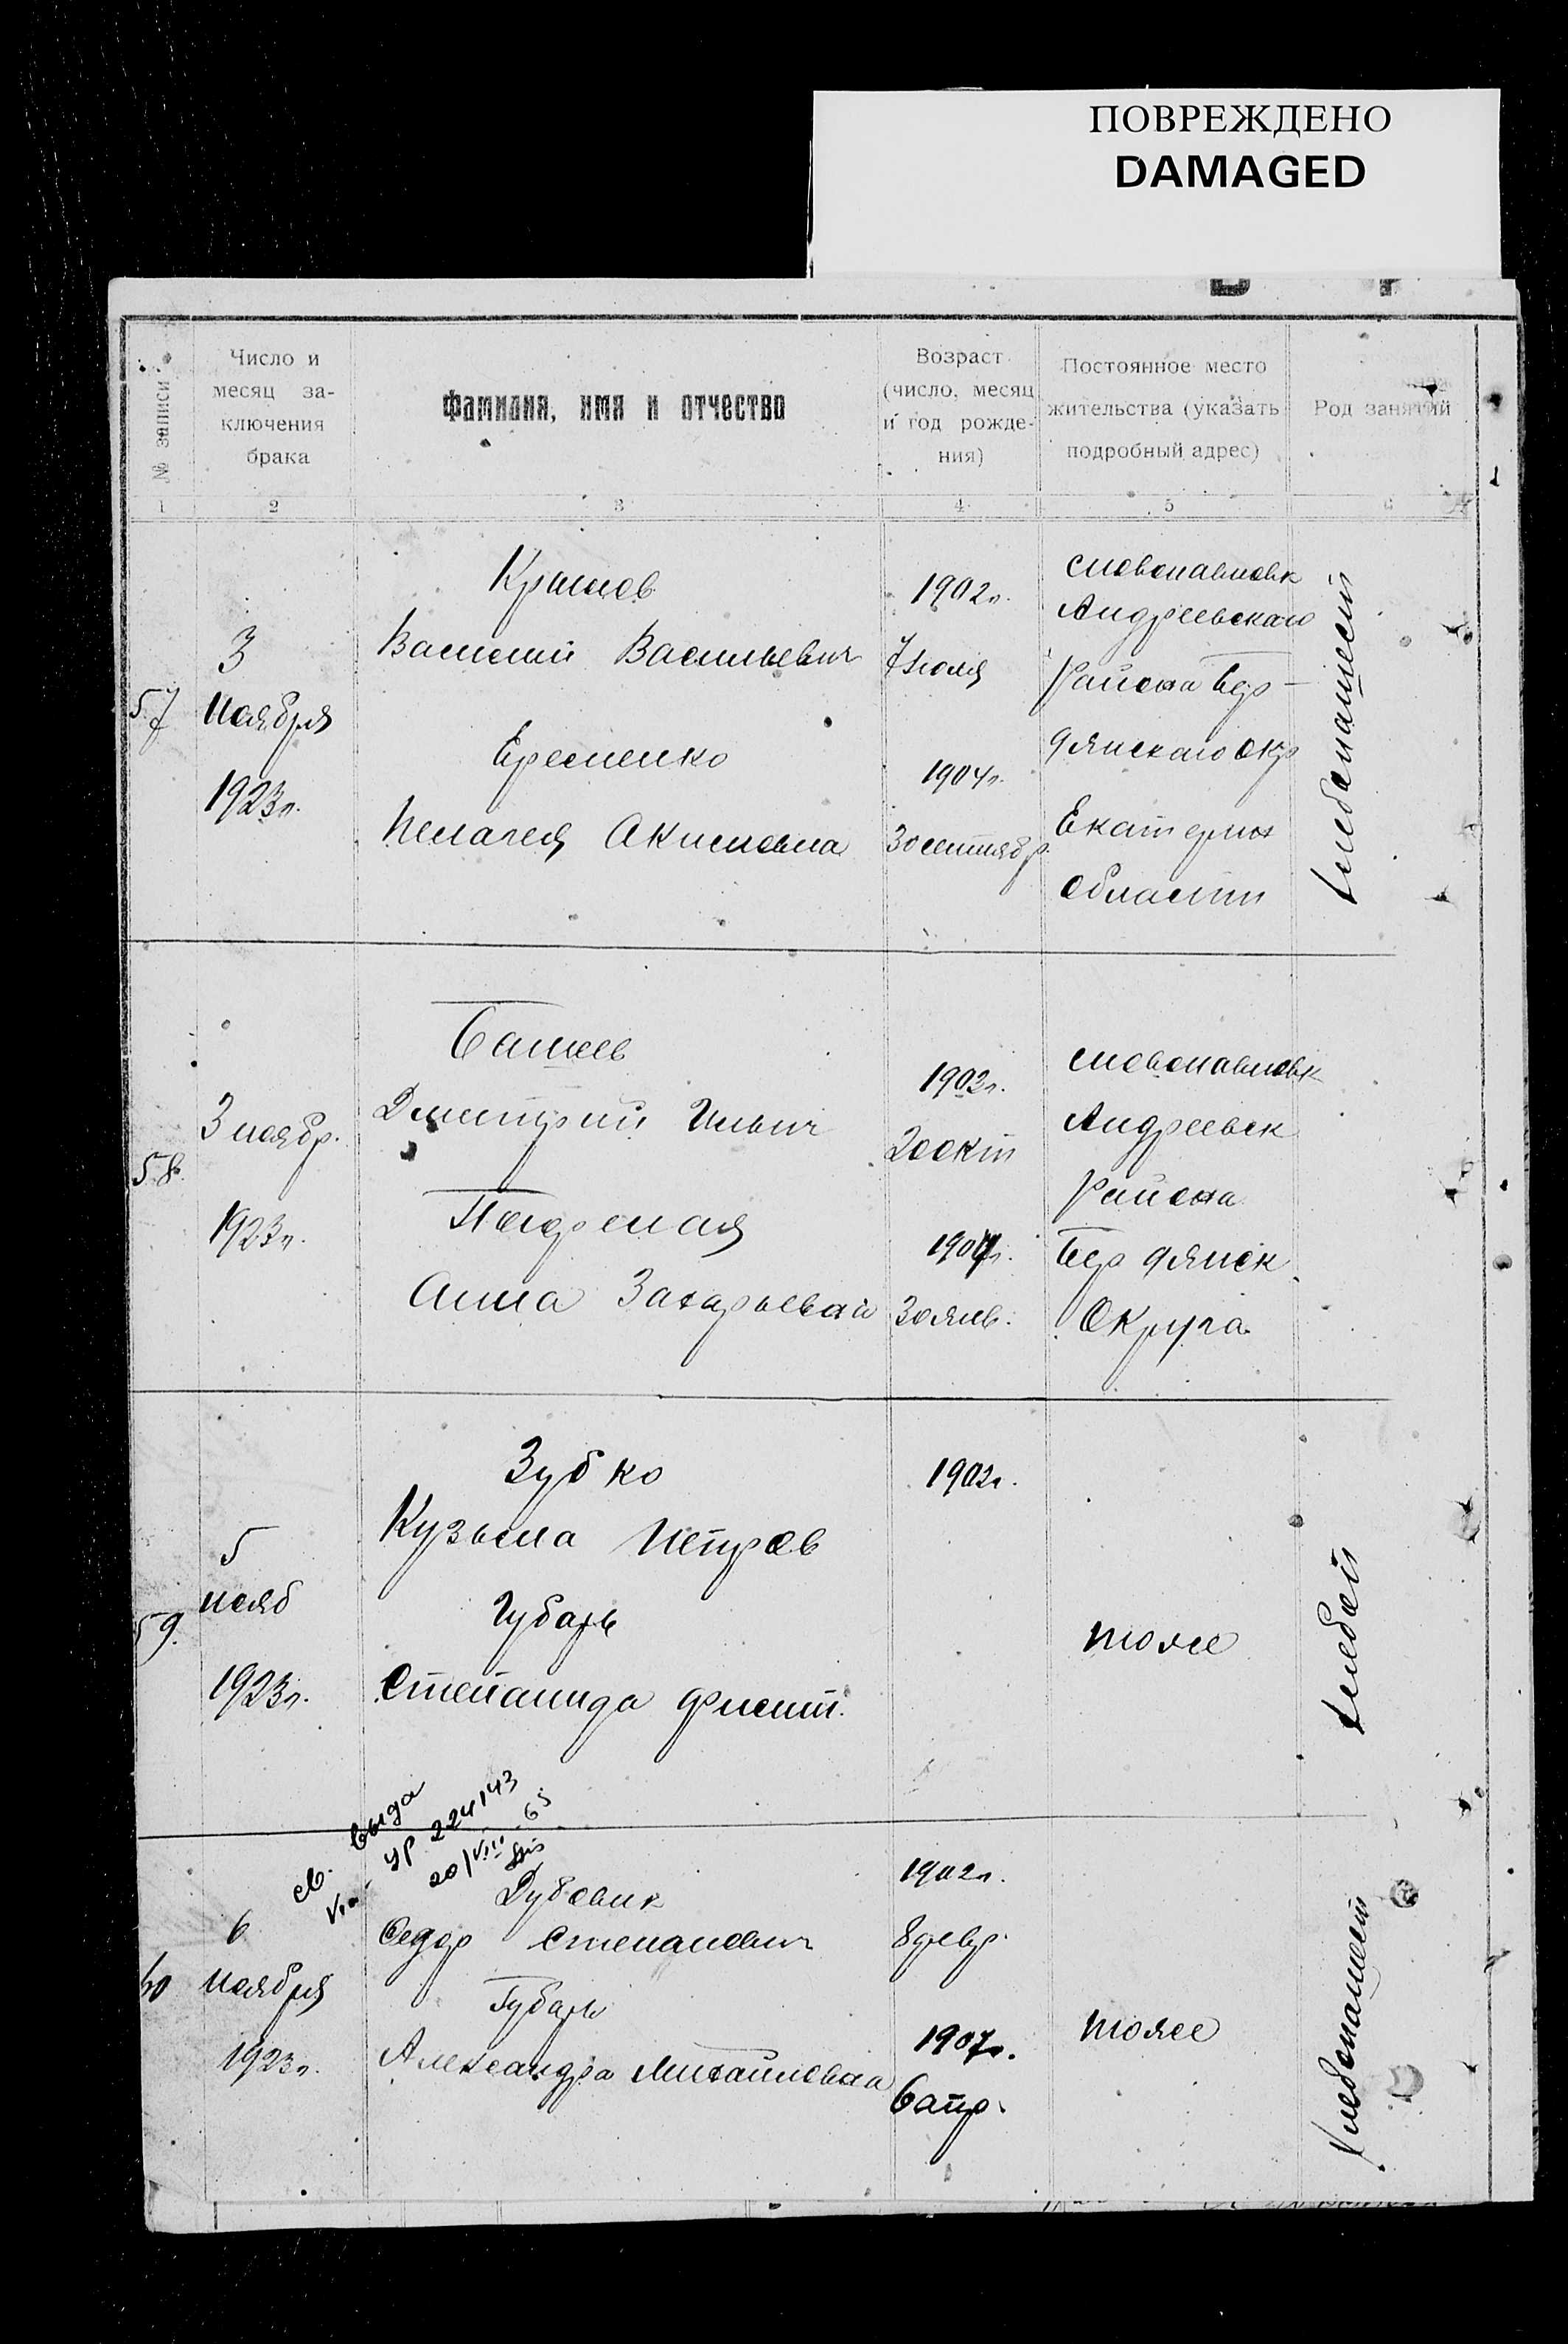 ПОВРЕЖДЕНО
DAMAGED
№ записи
Число и
месяц за-
ключения
брака
Фамилия, имя и отчество
Возраст
(число, месяц
и год рожде-
ния)
Постоянное место
жительства (указать
подробный адрес)
Род занятий
1
2
3
4
5
6
57
3
ноября
1923г.
Василий Васильевич
Еременко
Пелагея Акимовна
1902г.
7 июля
1904г.
30 сентябр.
Андреевского
Района Бер-
дянского окр
Екатерин
области
хлебопашест
58.
3 ноябр.
1923г.
Дмитрий Ильич
Анна Захарьевна
1902г.
20 окт
30 янв.
Андреевск
Района
Бердянск.
Округа
59.
5
нояб
1923г.
Зубко
Кузьма Петров
Губарь
Степанида
1902г.
тоже
хлебоп
св. выда
УР 224143
20/VIII-65
60
6
ноября
1923г.
Дубовик
Федор Степанович
Губарь
Александра Михайловна
1902г.
8 февр.
1907г.
6 апр.
тоже
Хлебопашест